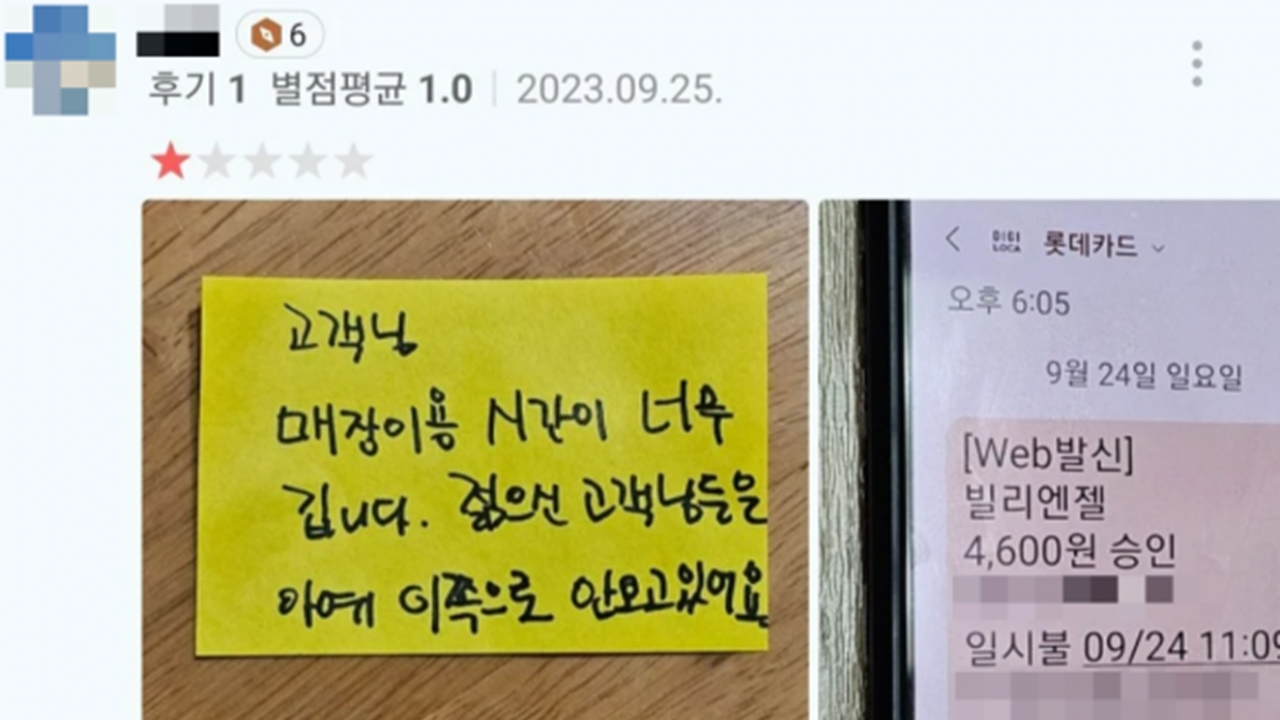 6
후기 1 별점평균 1.0 2023.09.25.
고객님
매장이용 시간이 너무
깁니다. 젊으신 고객님들은
아예 이쪽으로 안오고있어요
DIGI LOCA 롯데카드
오후 6:05
9월 24일 일요일
[Web발신]
빌리엔젤
4,600원 승인
일시불 09/24 11:09